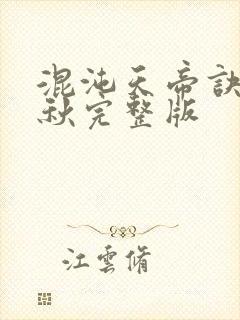 混沌天帝訣
秋完整版
江雲脩